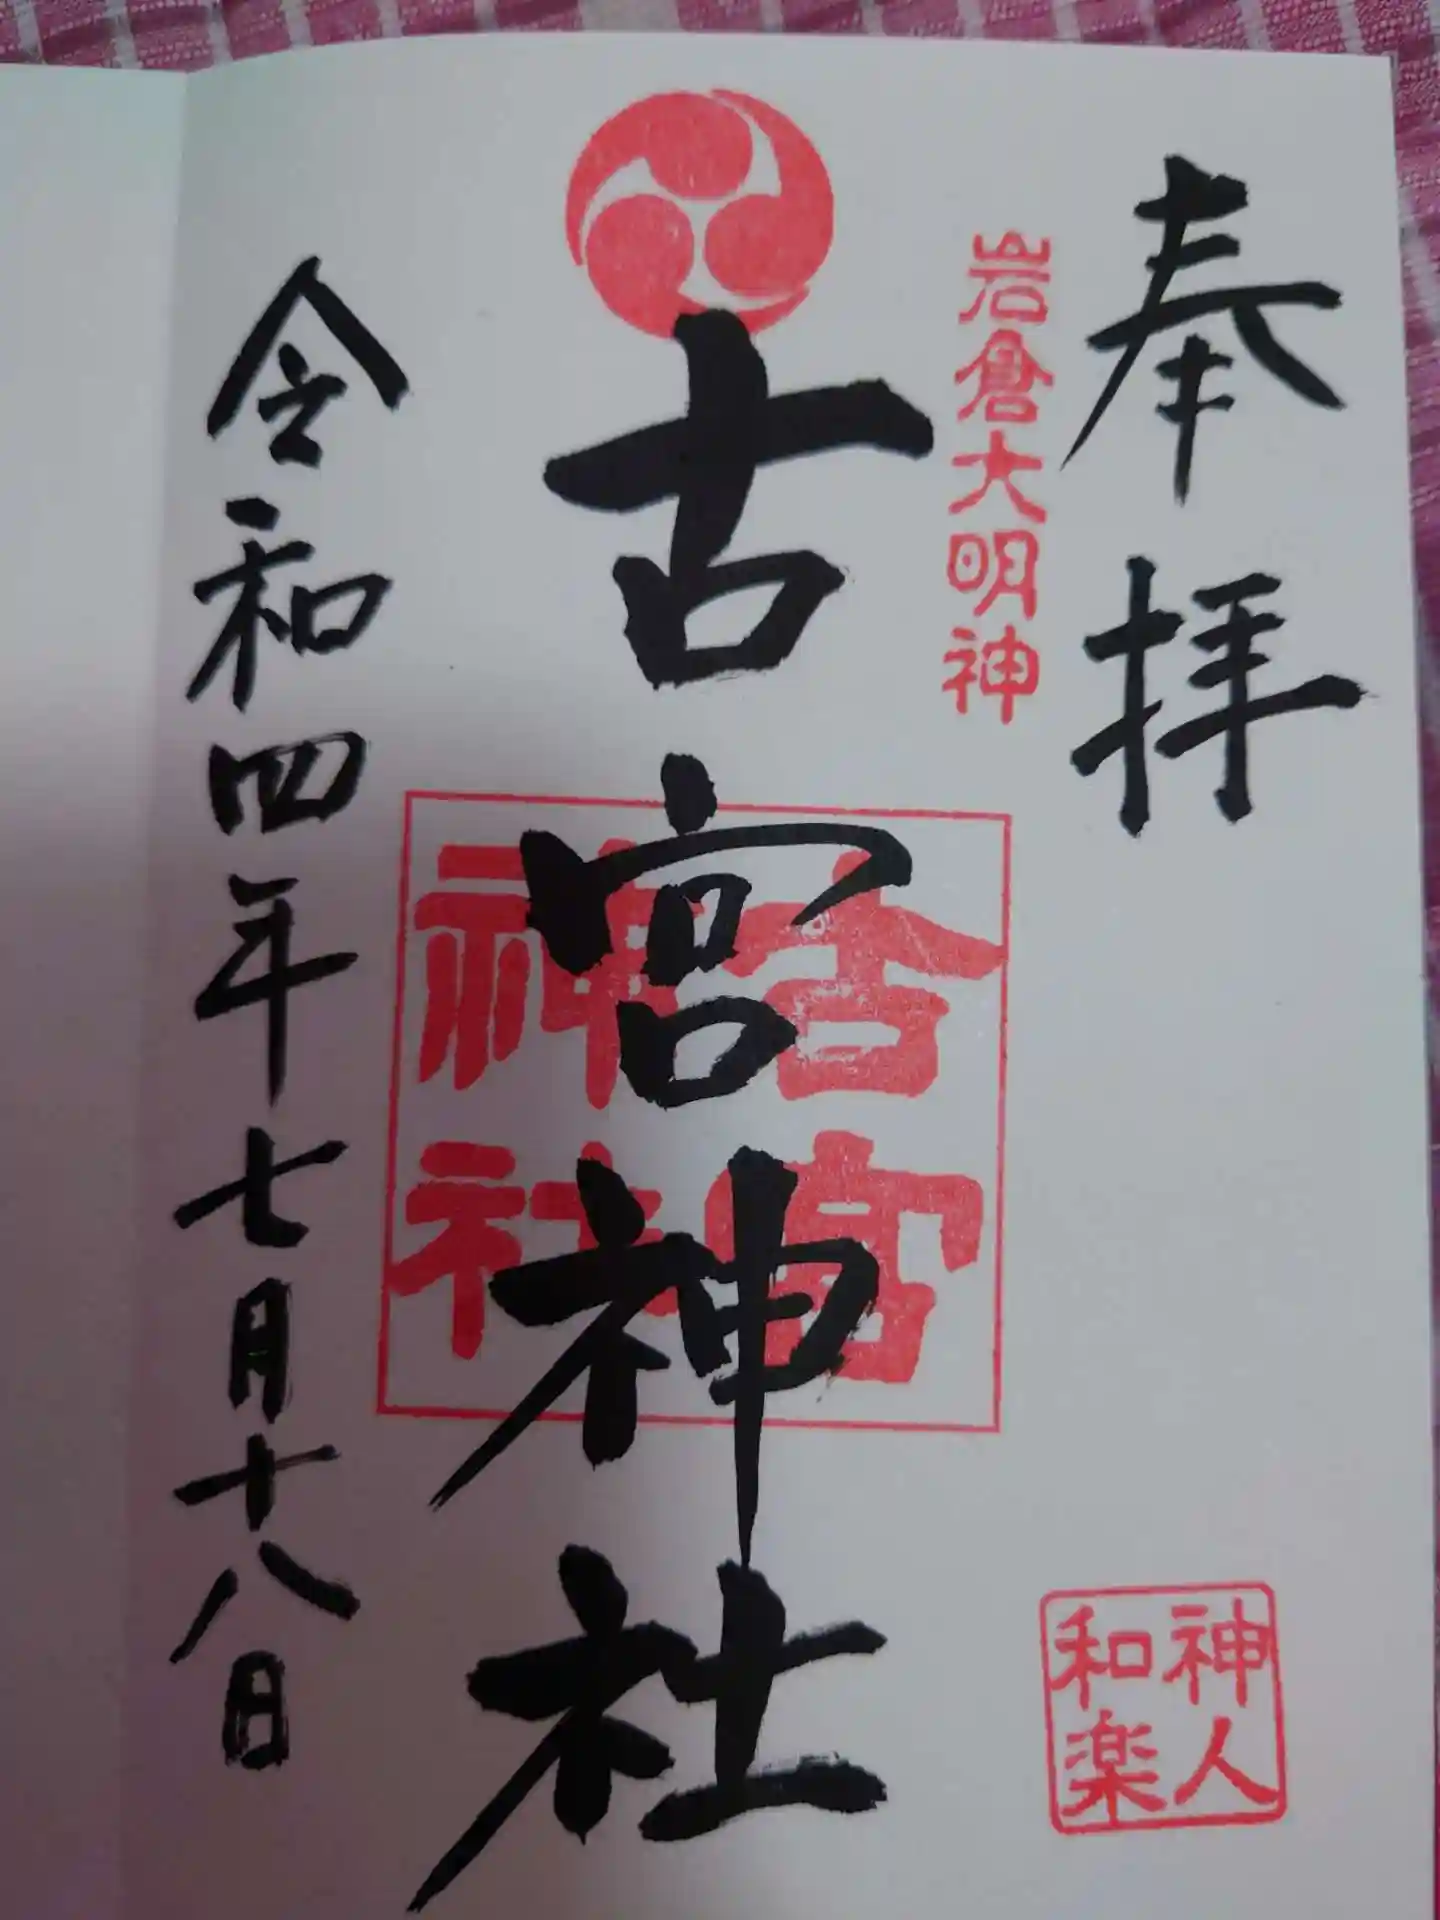 奉拝
岩倉大明神
神人和楽
古宮神社
古宮神社
令和四年七月十八日